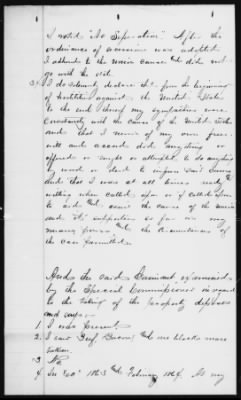 I voted "No Separation" After the
ordinance of secession was adopted
I adhered to the union cause and did not
go with the state.
I do solemnly declare that from the beginning
of hostilities against the United States
to the end thereof my sympathies were
Constantly with the cause of the United States
and that I never of my own free
will and accord did anything or
offered or sought or attempted to do anything
by word or deed to injure said cause
And that I was at all times ready and
willing when called upon or if called upon
to aid and assist the cause of the union
and its supporters so far as my
means, power and the circumstances of
the case permitted.
And the said Claimant examined
by the Special Commissioner in regard
to the taking of the property deposes
and says:
1 I was present
2 I saw Genl and one blacks mare
taken.
3 No
4 In 1863 and February 1864. At my